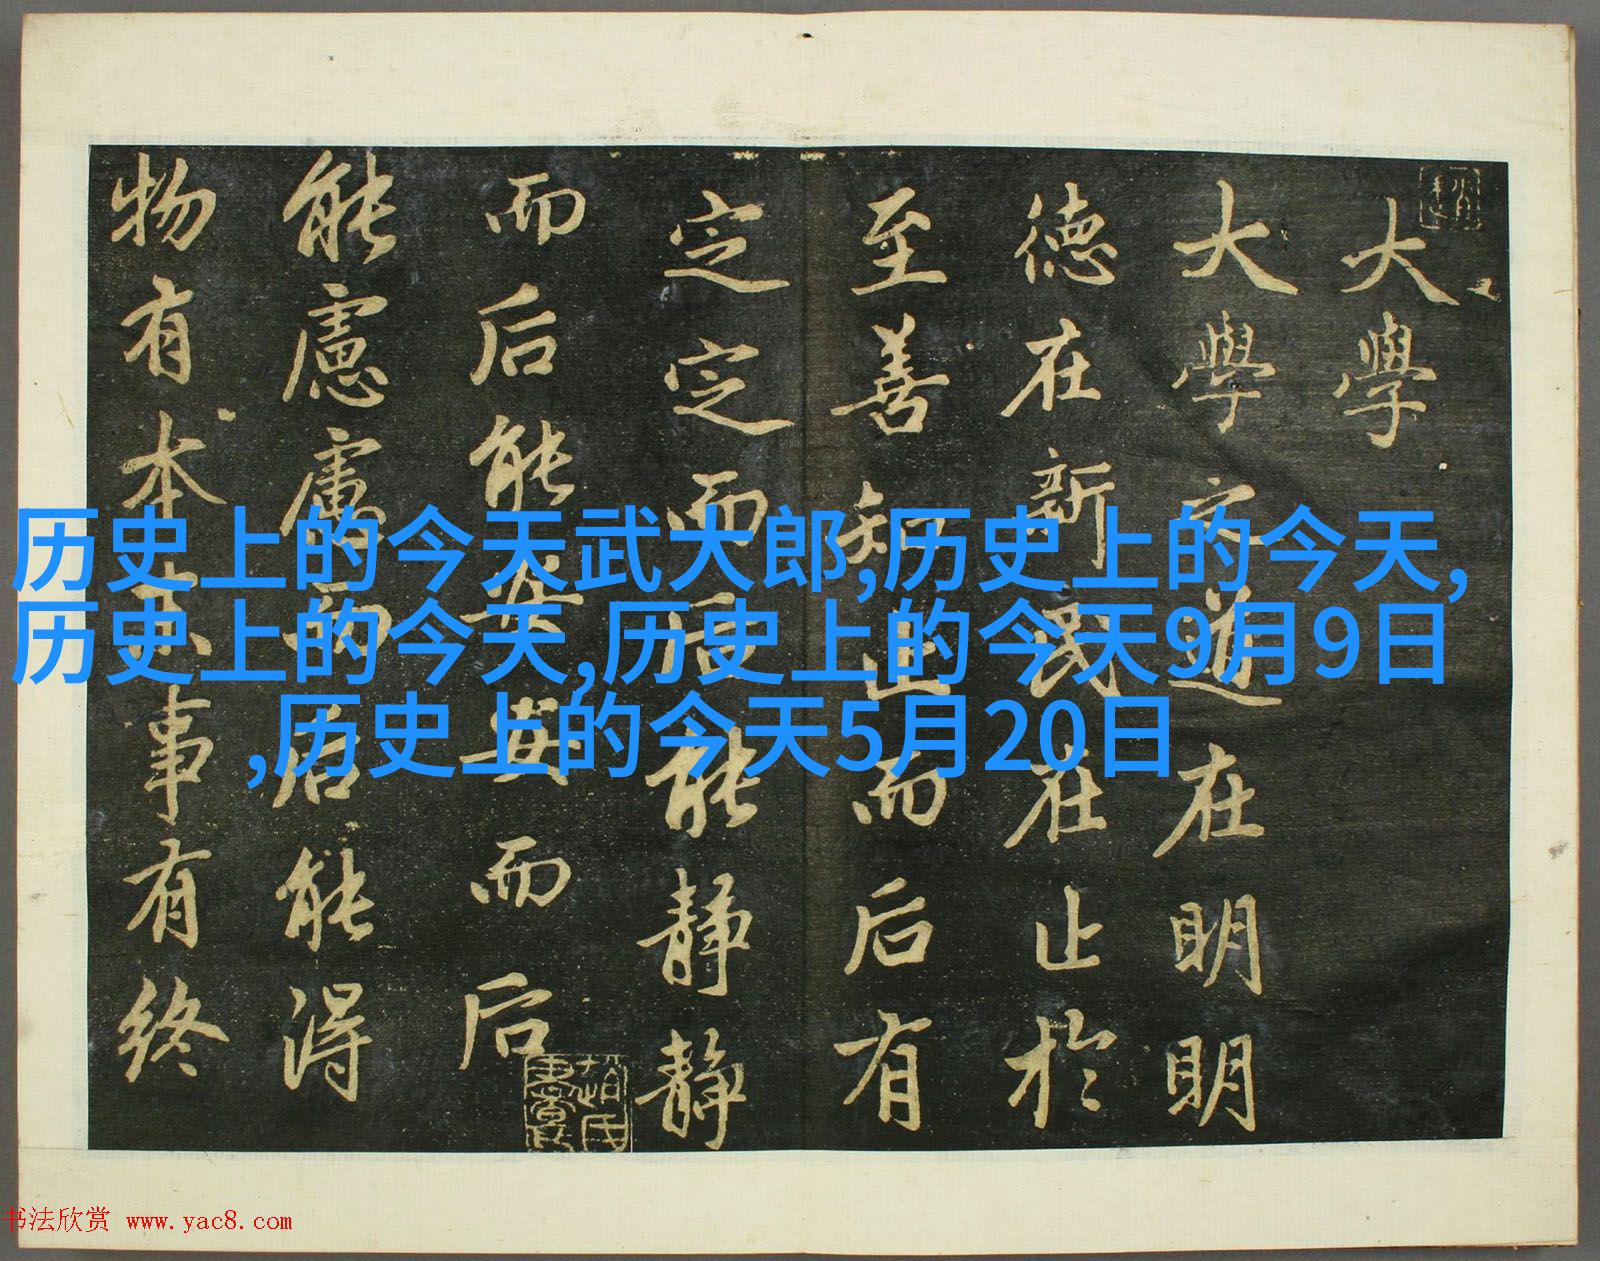 大學
大學之道在明明
德在新民在止於
至善知止而后有
定定而后能静静
而后能安安而后
能慮慮而后能得
物有本末事有終
历史上的今天武大郎,历史上的今天,
历史上的今天,历史上的今天9月9日
,历史上的今天5月20日
书法欣赏 www.yac8.com